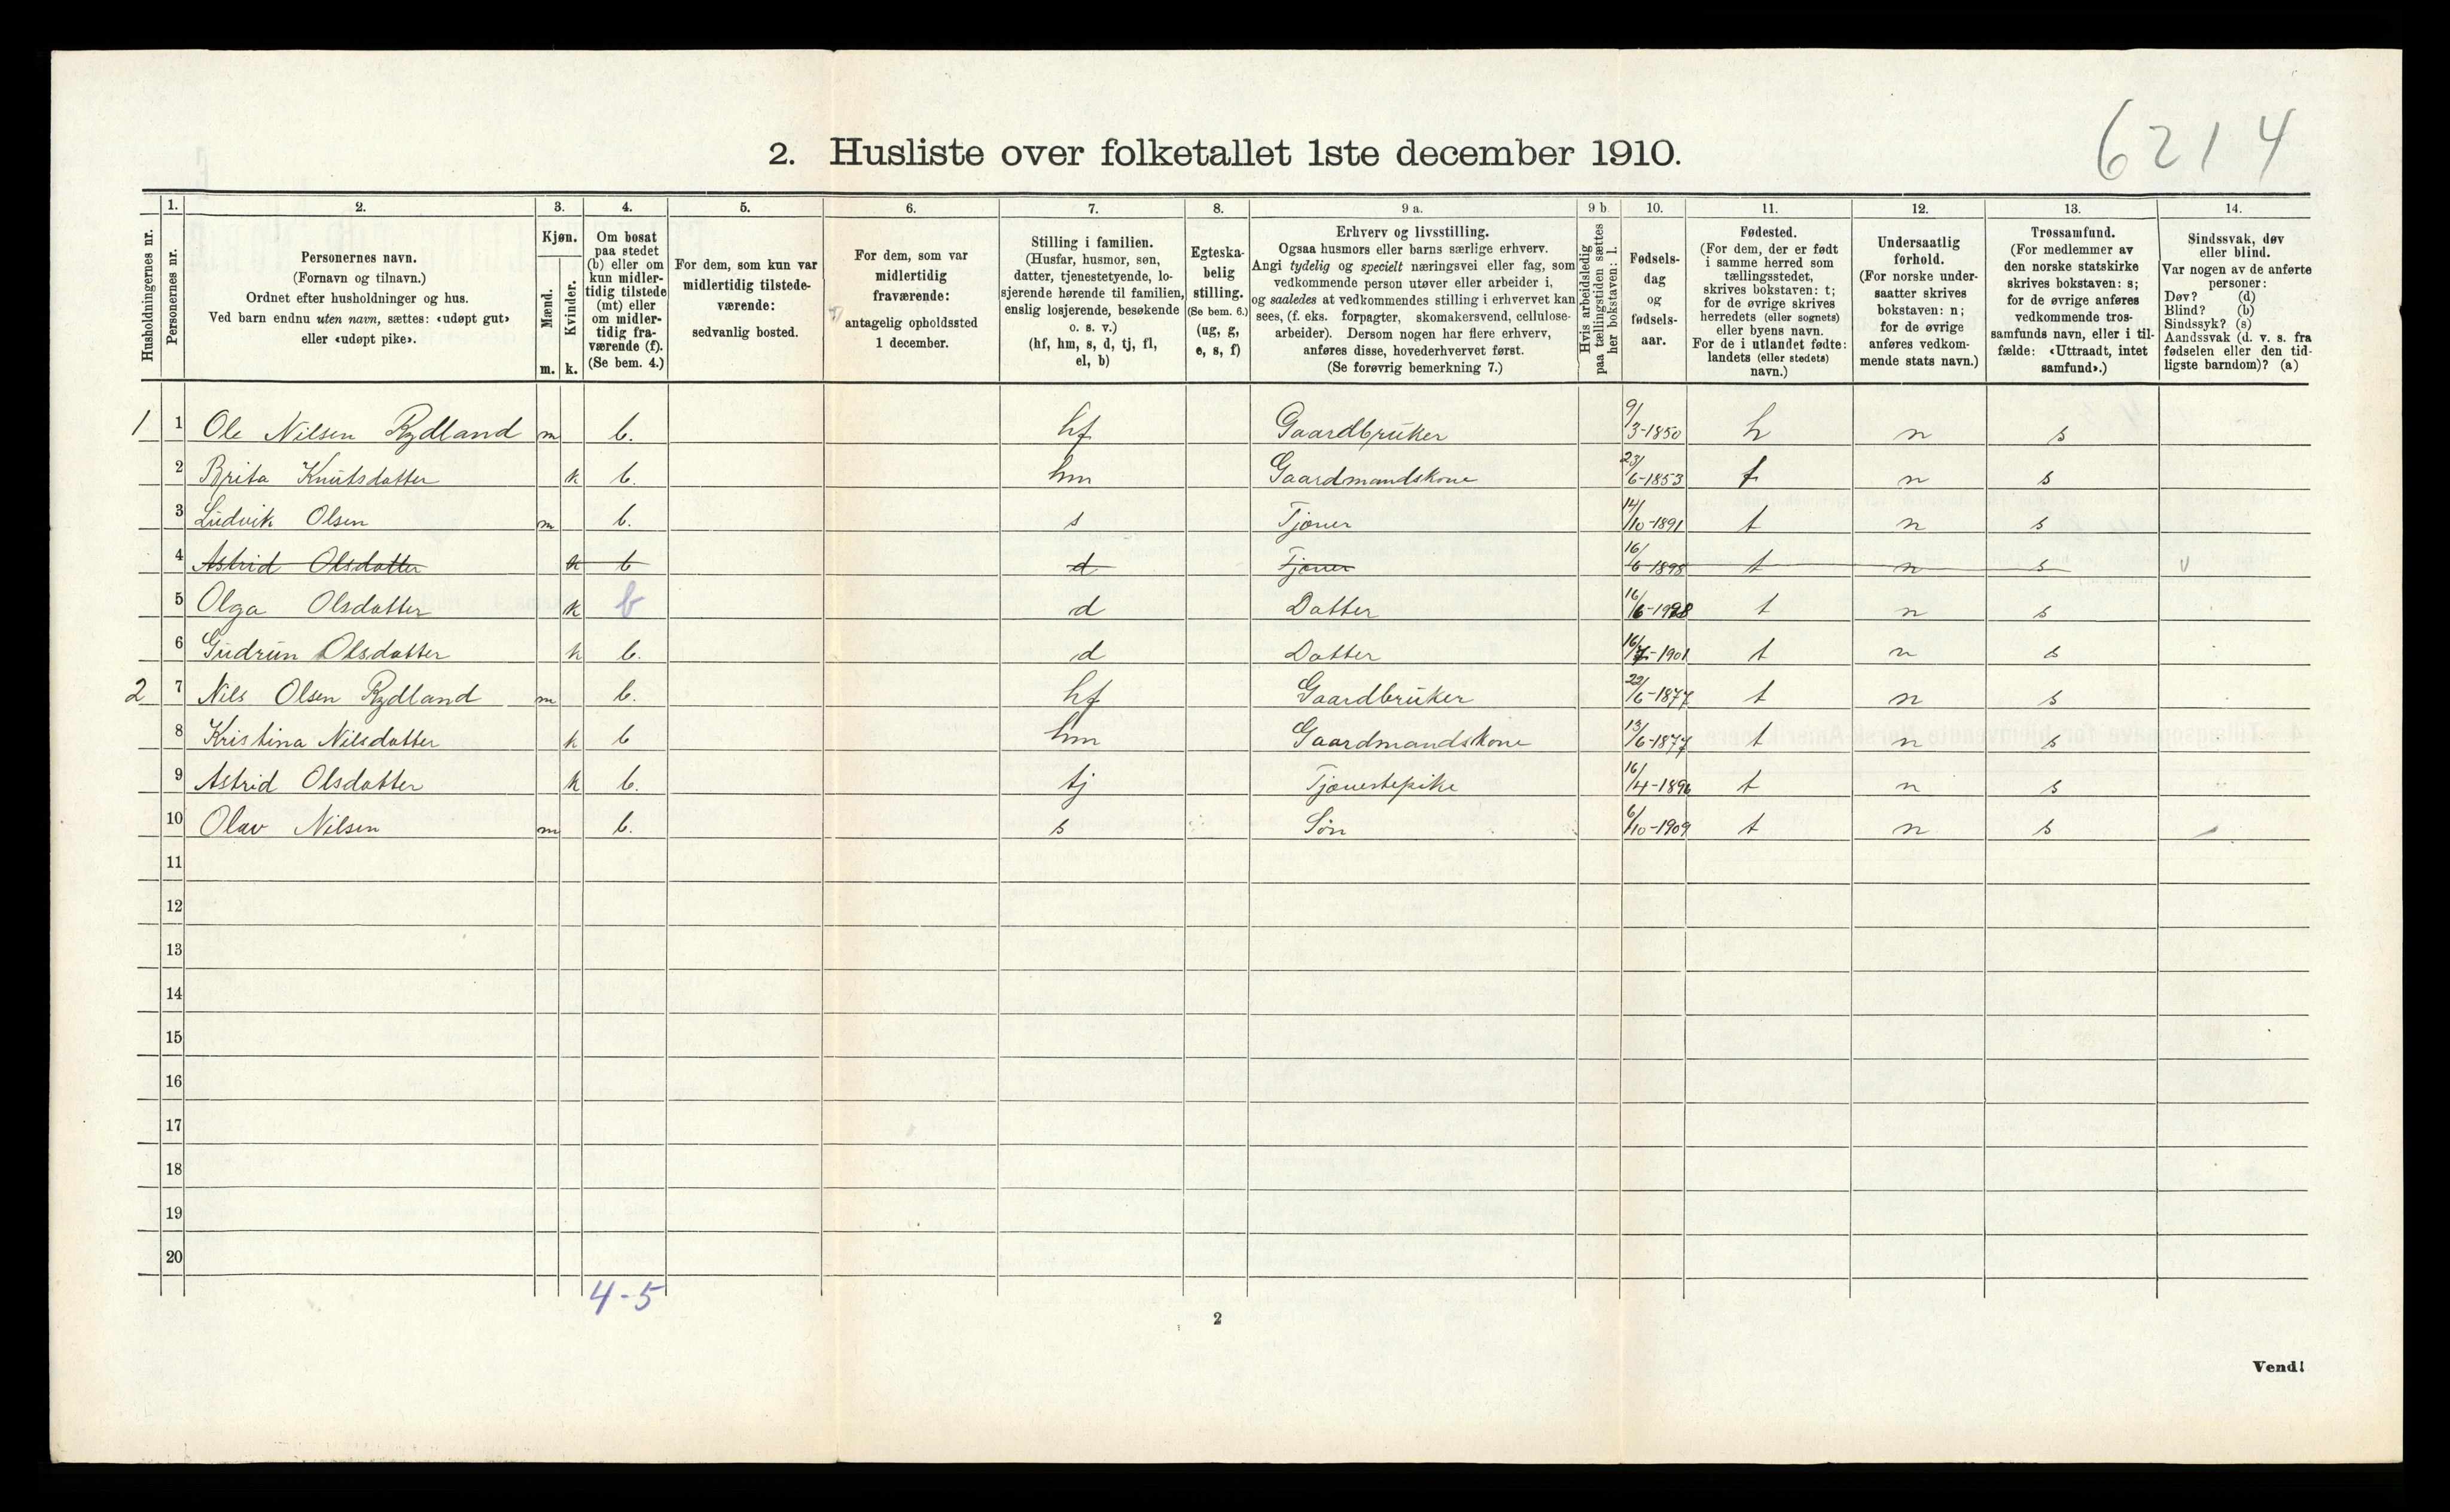 6214
2. Husliste over folketallet 1ste december 1910.
Husholdningernes nr.
1.
Personernes nr.
2.
Personernes navn.
(Fornavn og tilnavn.)
Ordnet efter husholdninger og hus.
Ved barn endnu uten navn, sættes: «udøpt gut»
eller «udøpt pike».
3.
Kjøn.
Mænd.
Kvinder.
m. k.
4.
Om bosat
paa stedet
(b) eller om
kun midler-
tidig tilstede
(mt) eller
om midler-
tidig fra-
værende (f).
(Se bem. 4.)
5.
For dem, som kun var
midlertidig tilstede-
værende:
sedvanlig bosted.
6.
For dem, som var
midlertidig
fraværende:
antagelig opholdssted
1 december.
7.
Stilling i familien.
(Husfar, husmor, søn,
datter, tjenestetyende, lo-
sjerende hørende til familien,
enslig losjerende, besøkende
o. s. v.)
(hf, hm, s, d, tj, fl,
el, b)
8.
Egteska-
belig
stilling.
(Se bem. 6.)
(ug, g,
e, s, f)
9 a.
Erhverv og livsstilling.
Ogsaa husmors eller barns særlige erhverv.
Angi tydelig og specielt næringsvei eller fag, som
vedkommende person utøver eller arbeider i,
og saaledes at vedkommendes stilling i erhvervet kan
sees, (f. eks. forpagter, skomakersvend, cellulose-
arbeider). Dersom nogen har flere erhverv,
anføres disse, hovederhvervet først.
(Se forøvrig bemerkning 7.)
9 b
Hvis arbeidsledig
paa tællingstiden sættes
her bokstaven: l.
10.
Fødsels-
dag
og
fødsels-
aar.
11.
Fødested.
(For dem, der er født
i samme herred som
tællingsstedet,
skrives bokstaven: t;
for de øvrige skrives
herredets (eller sognets)
eller byens navn.
For de i utlandet fødte:
landets (eller stedets)
navn.)
12.
Undersaatlig
forhold.
(For norske under-
saatter skrives
bokstaven: n;
for de øvrige
anføres vedkom-
mende stats navn.)
13.
Trossamfund.
(For medlemmer av
den norske statskirke
skrives bokstaven: s;
for de øvrige anføres
vedkommende tros-
samfunds navn, eller i til-
fælde: «Uttraadt, intet
samfund».)
14.
Sindssvak, døv
eller blind.
Var nogen av de anførte
personer:
Døv? (d)
Blind? (b)
Sindssyk? (s)
Aandssvak (d. v. s. fra
fødselen eller den tid-
ligste barndom)? (a)
1 1 Ole Nilsen Rydland m b. hf Gaardbruker 9/3-1850 h n s
2 Brita Knutsdatter k b. hm Gaardmandskone 23/6-1853 t n s
3 Ludvik Olsen m b. s Tjener 14/10-1891 t n s
4 Astrid Olsdatter k b d Tjener 16/6-1898 t n s v
5 Olga Olsdatter k b d Datter 16/6 t n s
6 Gudrun Olsdatter k b. d Datter 16/7-1901 t n s
2 7 Nils Olsen Rydland m b. hf Gaardbruker 22/6-1877 t n s
8 Kristina Nilsdatter k b hm Gaardmandskone 13/6-1877 t n s
9 Astrid Olsdatter k b. tj Tjenestepike 16/4-1896 t n s
10 Olav Nilsen m b. s Søn 6/10-1909 t n s
11
12
13
14
15
16
17
18
19
20
4-5
2
Vend!